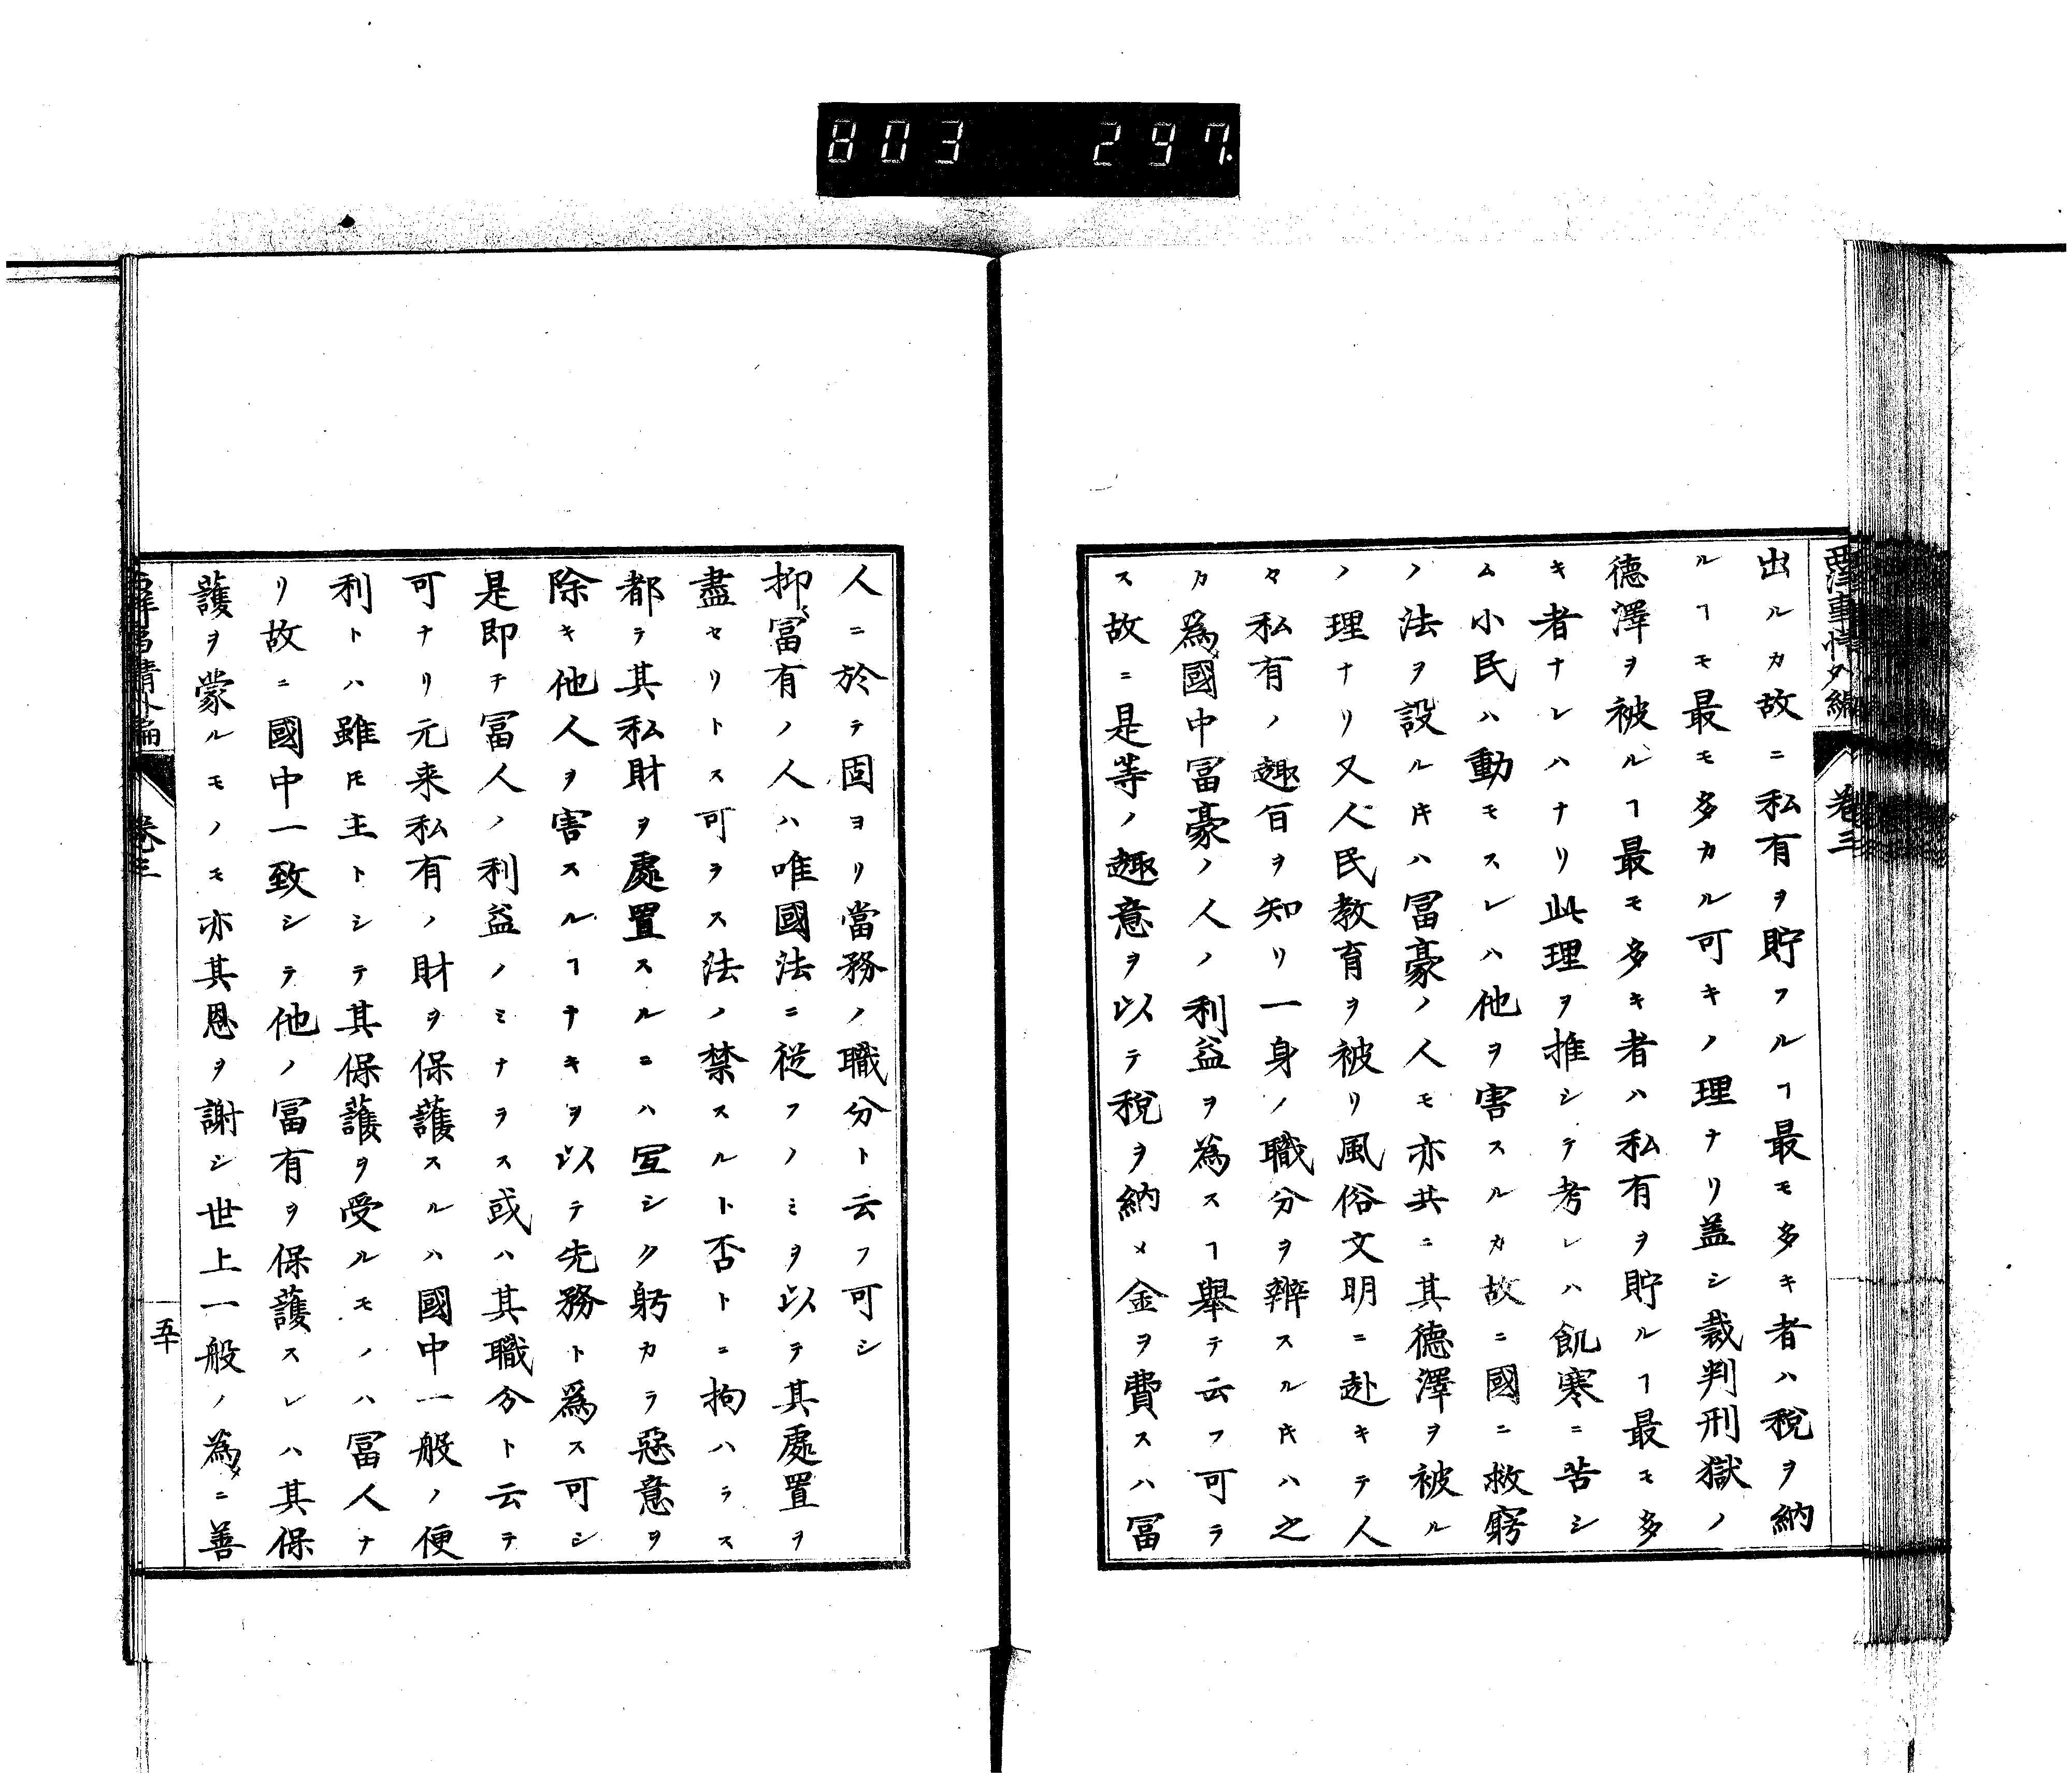 803 297.
西洋事情外編 卷三
出ルカ故ニ私有ヲ貯フルヿ最モ多キ者ハ稅ヲ納
ルヿモ最モ多カル可キノ理ナリ盖シ裁判刑獄ノ
德澤ヲ被ルヿ最モ多キ者ハ私有ヲ貯ルヿ最モ多
キ者ナレハナリ此理ヲ推シテ考レハ飢寒ニ苦シ
ム小民ハ動モスレハ他ヲ害スルカ故ニ國ニ救窮
ノ法ヲ設ルキハ冨豪ノ人モ亦共ニ其德澤ヲ被ル
ノ理ナリ又人民教育ヲ被リ風俗文明ニ赴キテ人
々私有ノ趣百ヲ知リ一身ノ職分ヲ辨スルキハ之
カ爲メ國中冨豪ノ人ノ利益ヲ為スヿ舉テ云フ可ラ
ス故ニ是等ノ趣意ヲ以テ稅ヲ納メ金ヲ費スハ冨
人ニ於テ固ヨリ當務ノ職分ト云フ可シ
抑〻冨有ノ人ハ唯國法ニ從フノミヲ以テ其處置ヲ
盡セリトス可ラス法ノ禁スルト否トニ拘ハラス
都テ其私財ヲ處置スルニハ冝シク躬カラ惡意ヲ
除キ他人ヲ害スルヿナキヲ以テ先務ト爲ス可シ
是即チ冨人ノ利益ノミナラス或ハ其職分ト云テ
可ナリ元来私有ノ財ヲ保護スルハ國中一般ノ便
利トハ雖𪜈主トシテ其保護ヲ受ルモノハ冨人ナ
リ故ニ國中一致シテ他ノ冨有ヲ保護スレハ其保
護ヲ蒙ルモノモ亦其恩ヲ謝シ世上一般ノ為メニ善
西洋事情外編 卷三 五十